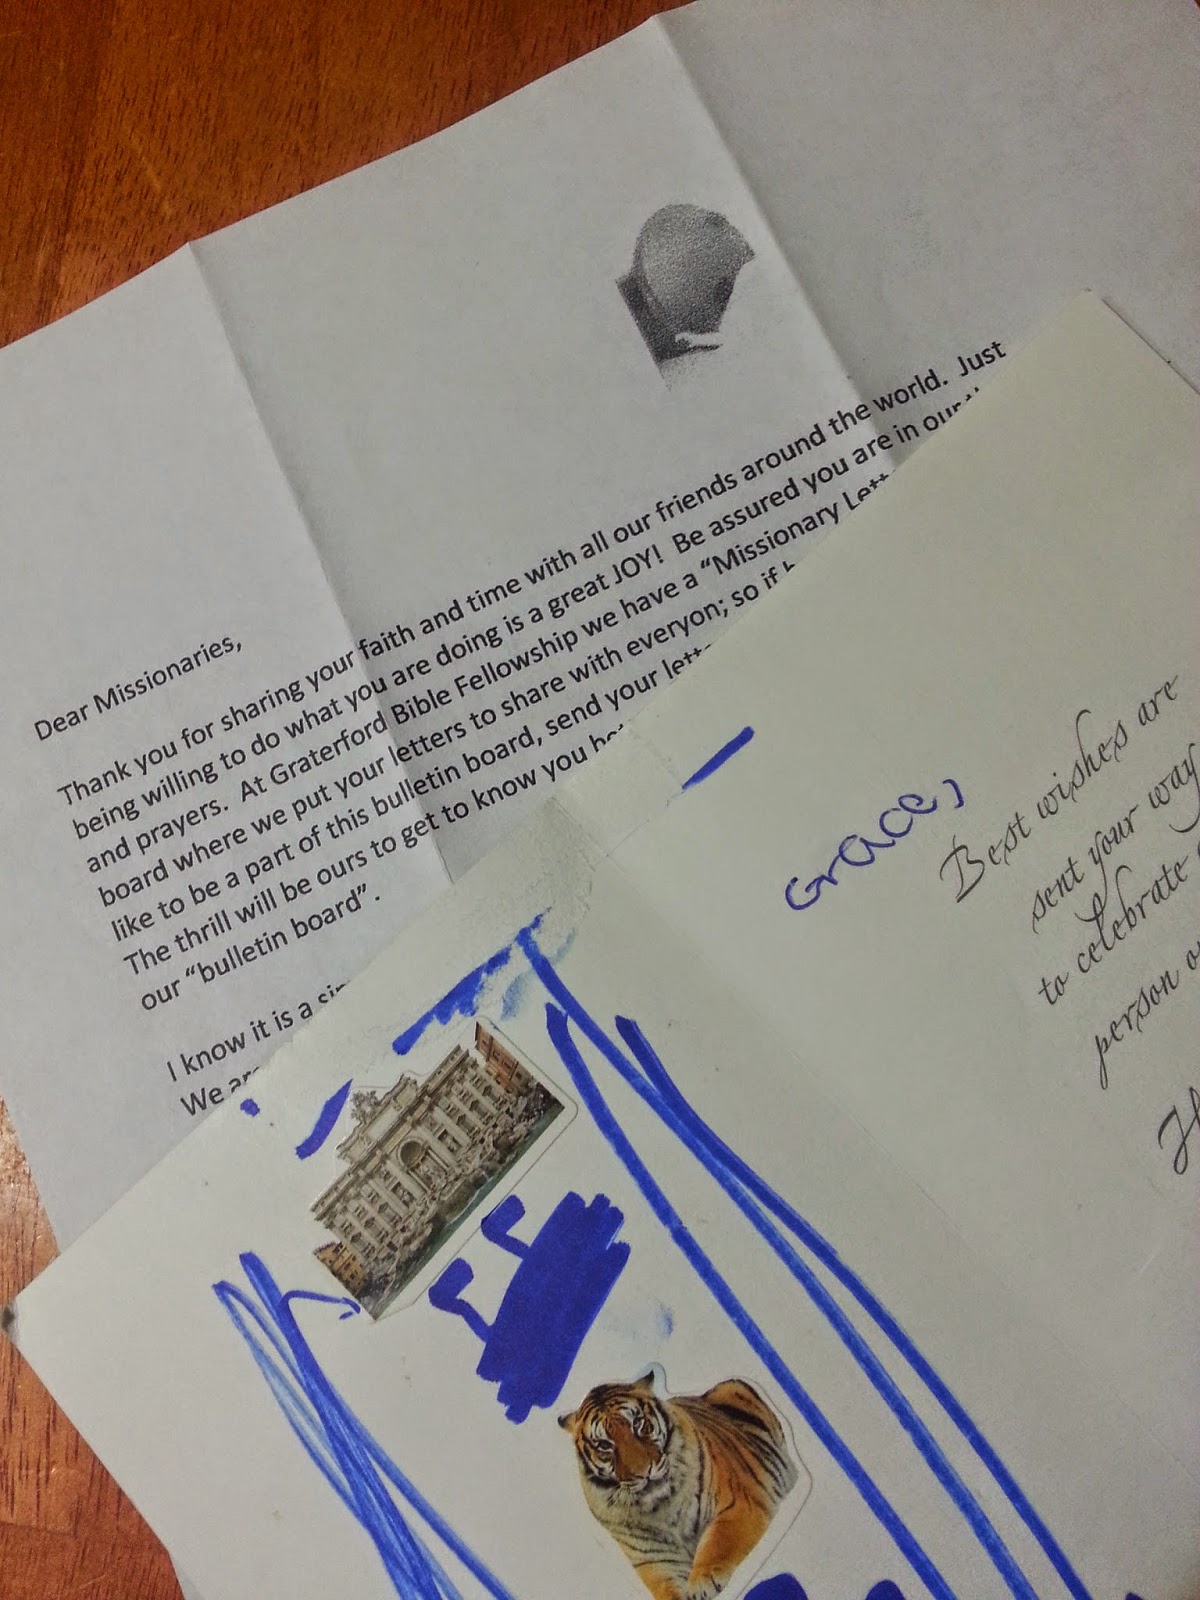 Dear Missionaries,
Thank you for sharing your faith and time with all our friends around the world. Just
being willing to do what you are doing is a great JOY! Be assured you are in our
and prayers. At Graterford Bible Fellowship we have a “Missionary Lett
board where we put your letters to share with everyon; so if
like to be a part of this bulletin board, send your lett
The thrill will be ours to get to know you
our “bulletin board”.
I know it is a
We are
Grace,
Best wishes are
sent your way
to celebrate
person